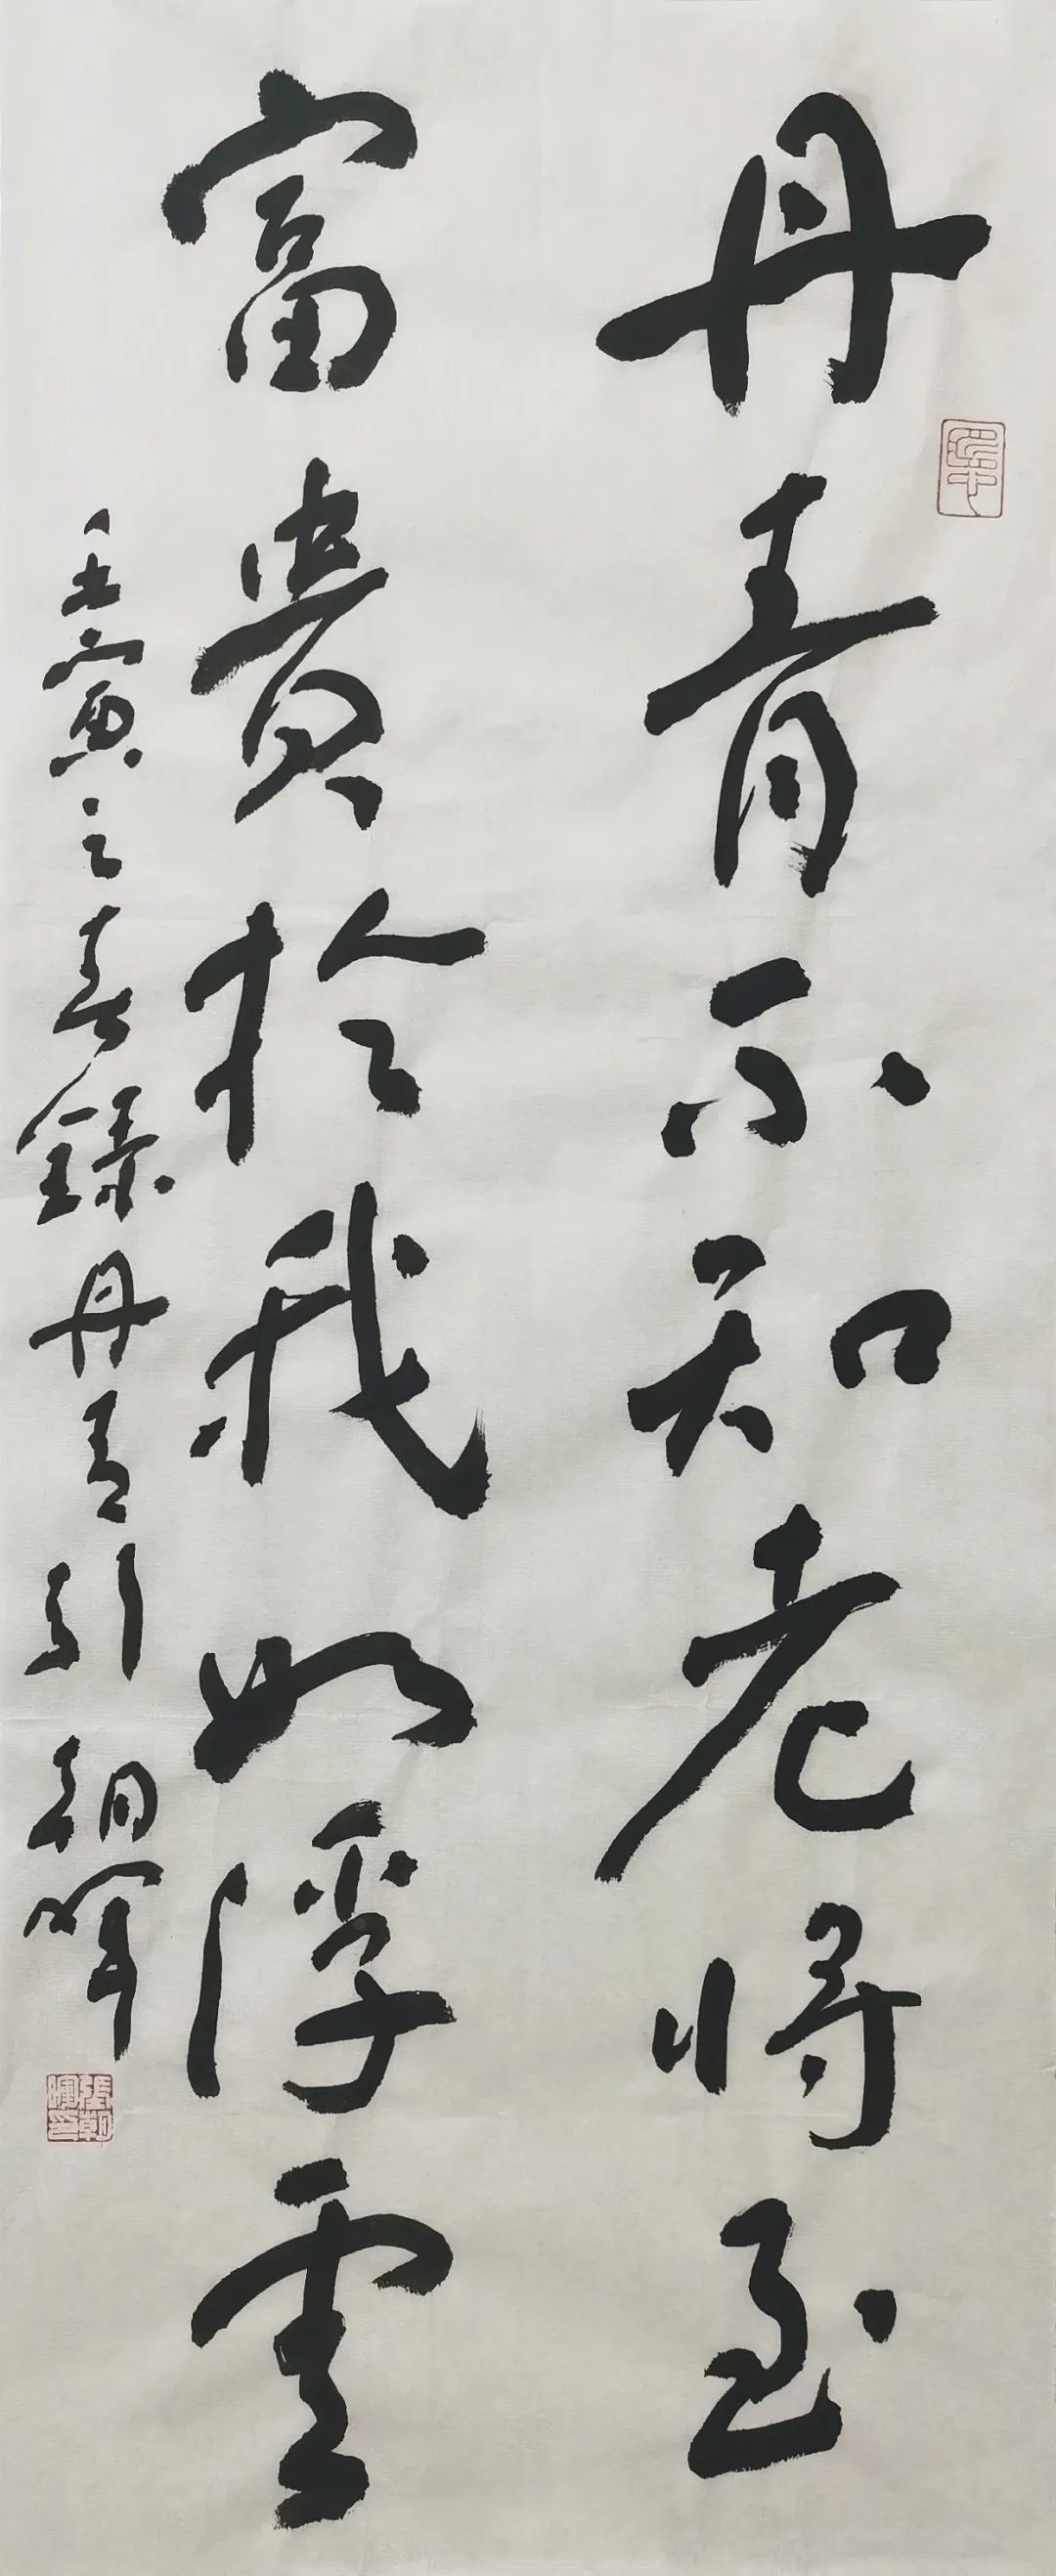 丹青不知老将至
富贵於我如浮雲
壬寅之春録丹青引 朝暉
張朝暉印